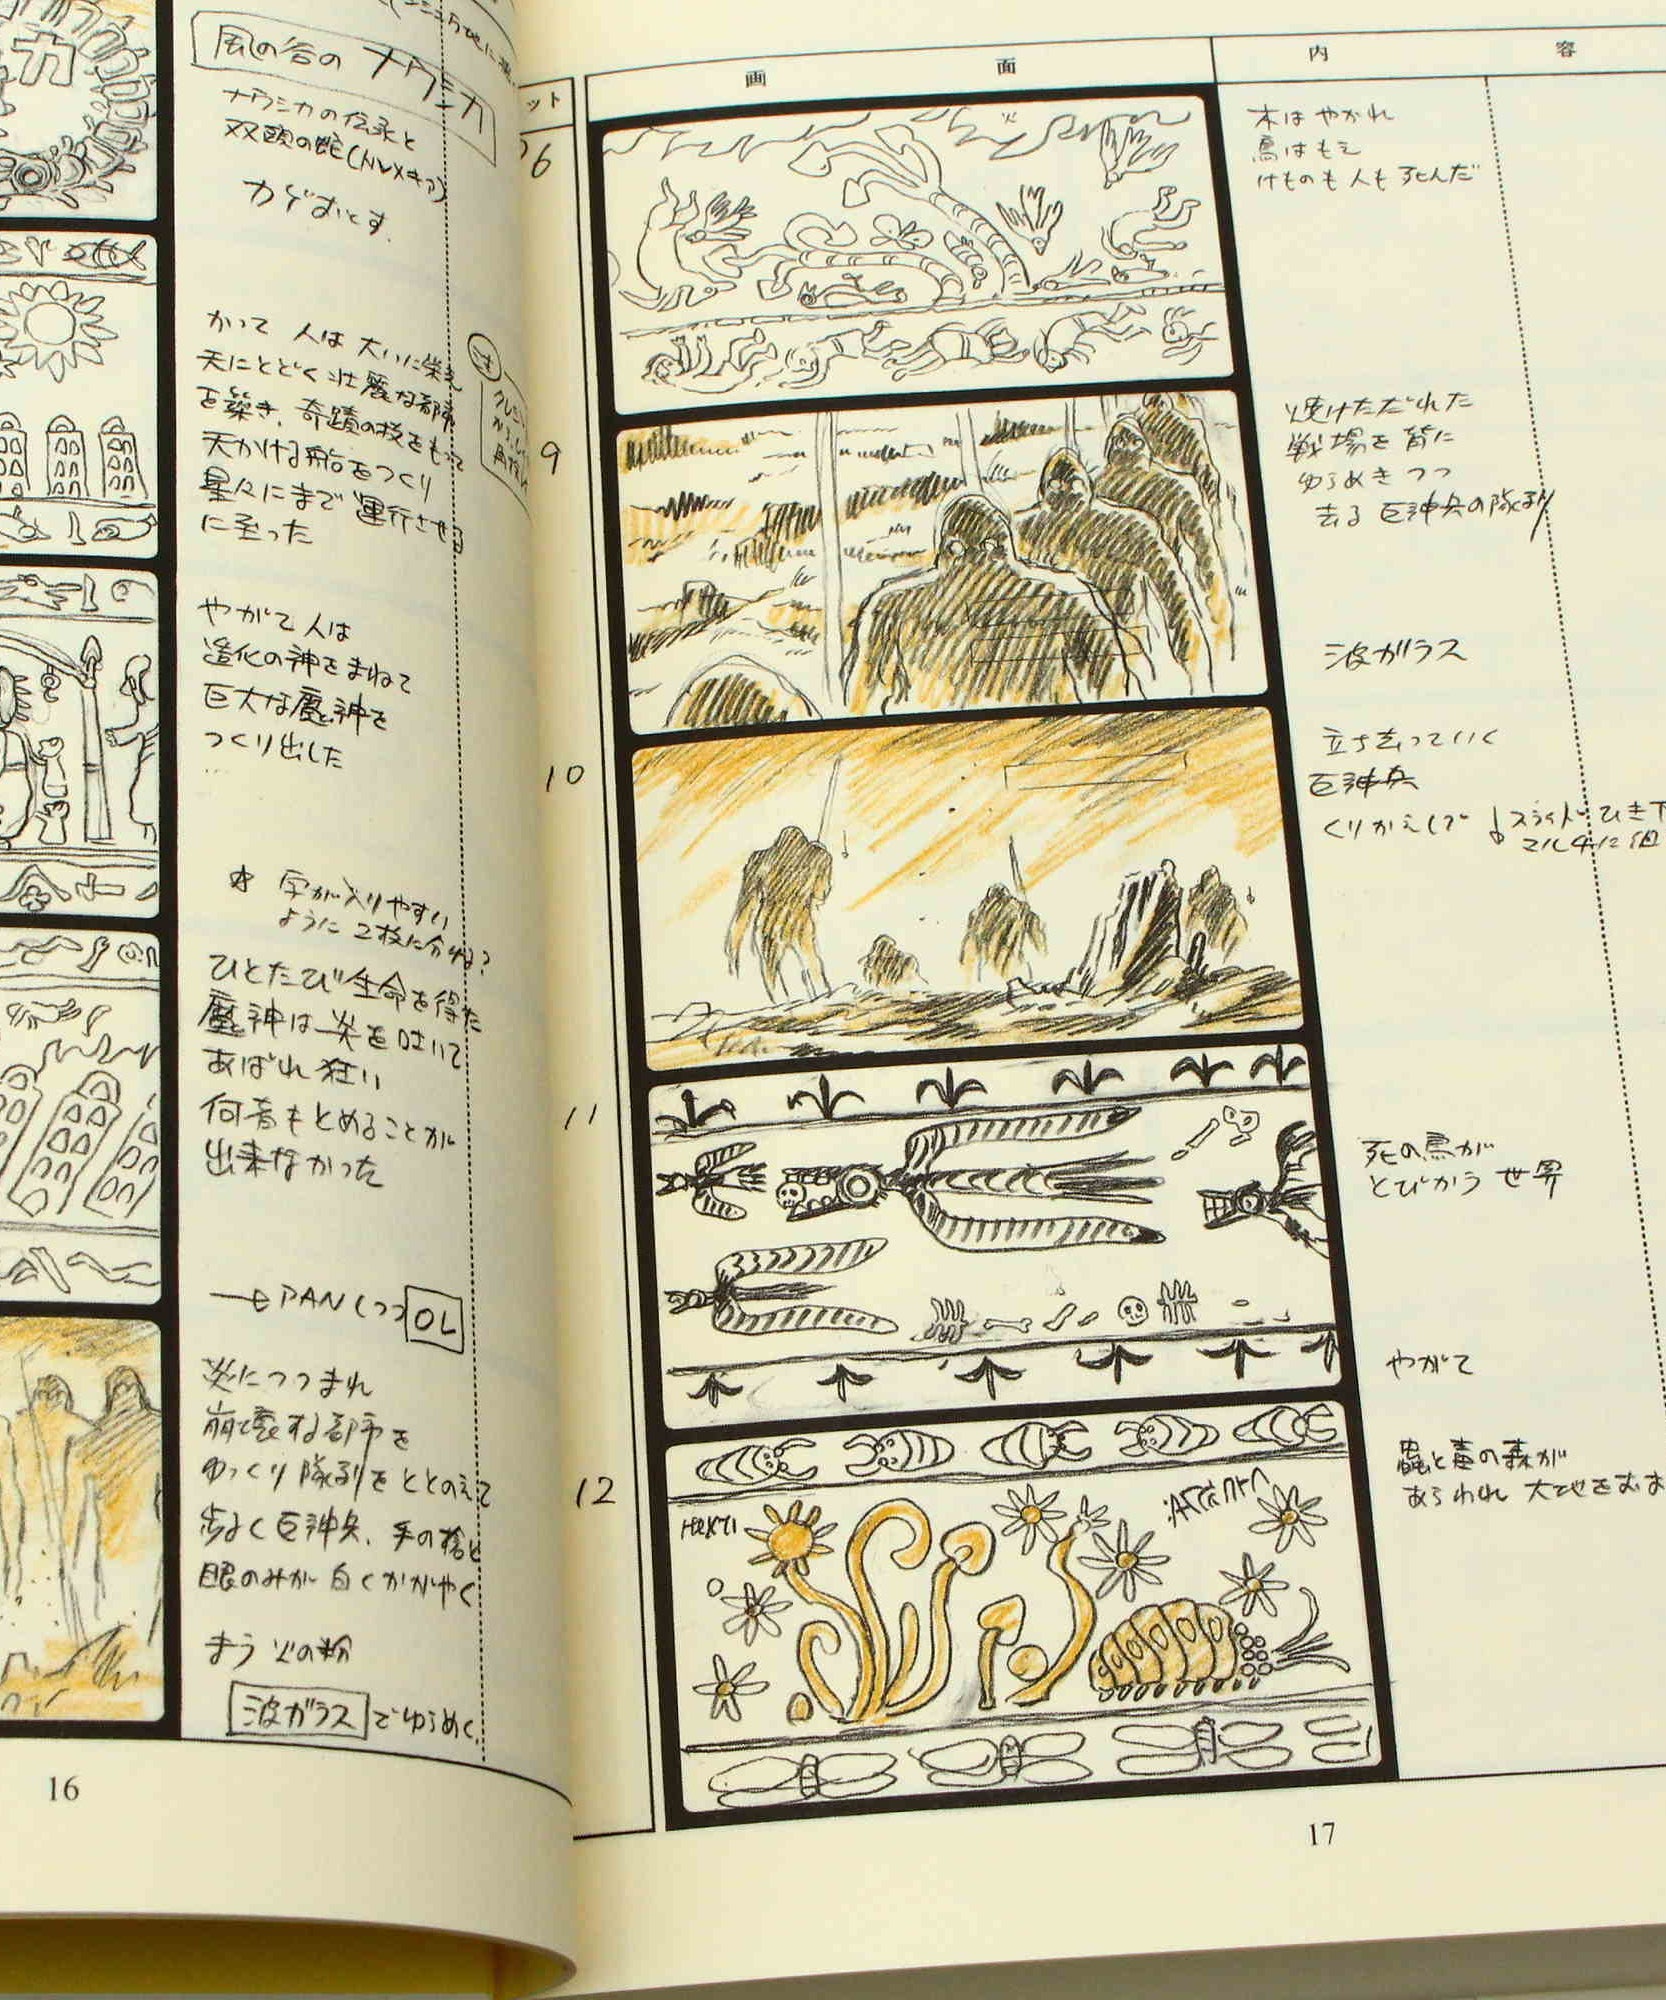 風の谷の ナウシカ
ナウシカの伝承と
双頭の蛇
カゲおとす.
かって 人は 大いに栄え
天にとどく壮麗な都市
を築き、奇蹟の技をもって
天かける船をつくり
星々にまで 運行させ
に至った
やがて人は
造化の神をまねて
巨大な魔神を
つくり出した
字が入りやすい
ように 2枚に分ける?
ひとたび生命を得た
魔神は 炎を吐いて
あばれ狂い
何者もとめることが
出来なかった
PAN しつつ OL
炎につつまれ
崩壊する都市を
ゆっくり 隊列を ととのえて
歩よく巨神兵、手の槍と
眼のみが 白くかがやく
まう 火の粉
波ガラス でゆらめく.
16
カ
ット
画 面
内 容
6
木は やかれ
鳥は もえ
けものも 人も 死んだ
火
9
焼けただれた
戦場を 背に
ゆらめきつつ
去る 巨神兵の隊列
波ガラス
10
立ち去っていく
巨神兵
くりかえしで スライド ひき下
マルチに
11
死の鳥が
とびかう 世界
やがて
12
蟲と毒の森が
あらわれ 大地を
17